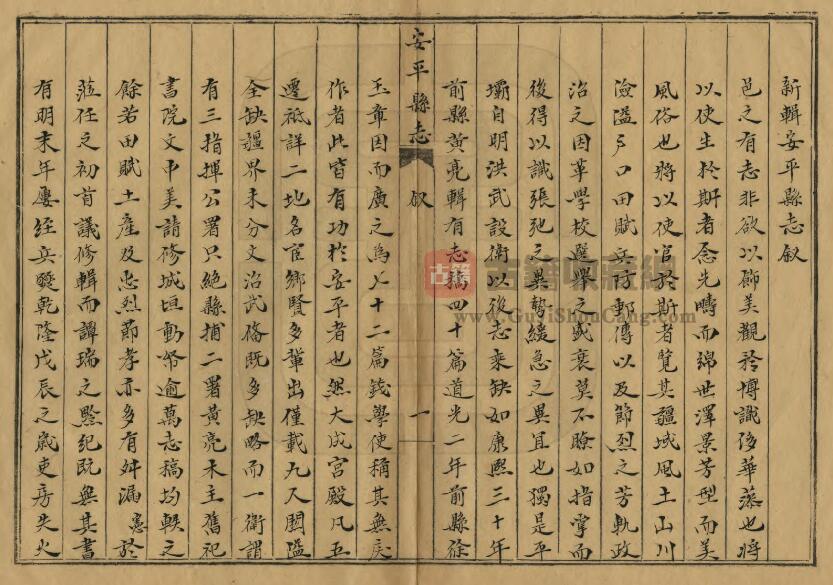 新輯安平縣志叙
邑之有志非欲以飾美觀矜博識侈華藻也將
以使生於斯者念先疇而綿世澤景芳型而美
風俗也將以使官於斯者覽其疆域風土山川
險溢户口田賦兵防郵傳以及節烈之芳軌政
治之因革學校選舉之盛衰莫不瞭如指掌而
後得以識張弛之異勢緩急之異宜也獨是平
壩自明洪武設衛以後志乘缺如康熙三十年
前縣黃亮輯有志稿四十篇道光二年前縣徐
安平縣志
叙
一
玉章因而廣之為七十二篇錢學使稱其無戾
作者此皆有功於安平者也然大成宮殿凡五
遷祗詳二地名宦鄉賢多輩出僅載九人關隘
全缺疆界未分文治武備既多缺略而一衛謂
有三指揮公署只絕縣捕二署黃亮未主舊祀
書院文中美請修城垣動帑逾萬志稿均軼之
餘若田賦土產及忠烈節孝亦多有舛漏憲於
蒞任之初首議修輯而譚瑞之黔紀既無其書
有明末年屢經兵燹乾隆戊辰之歲吏房失火
古籍
古籍收藏網
www.GuJiShouCang.com